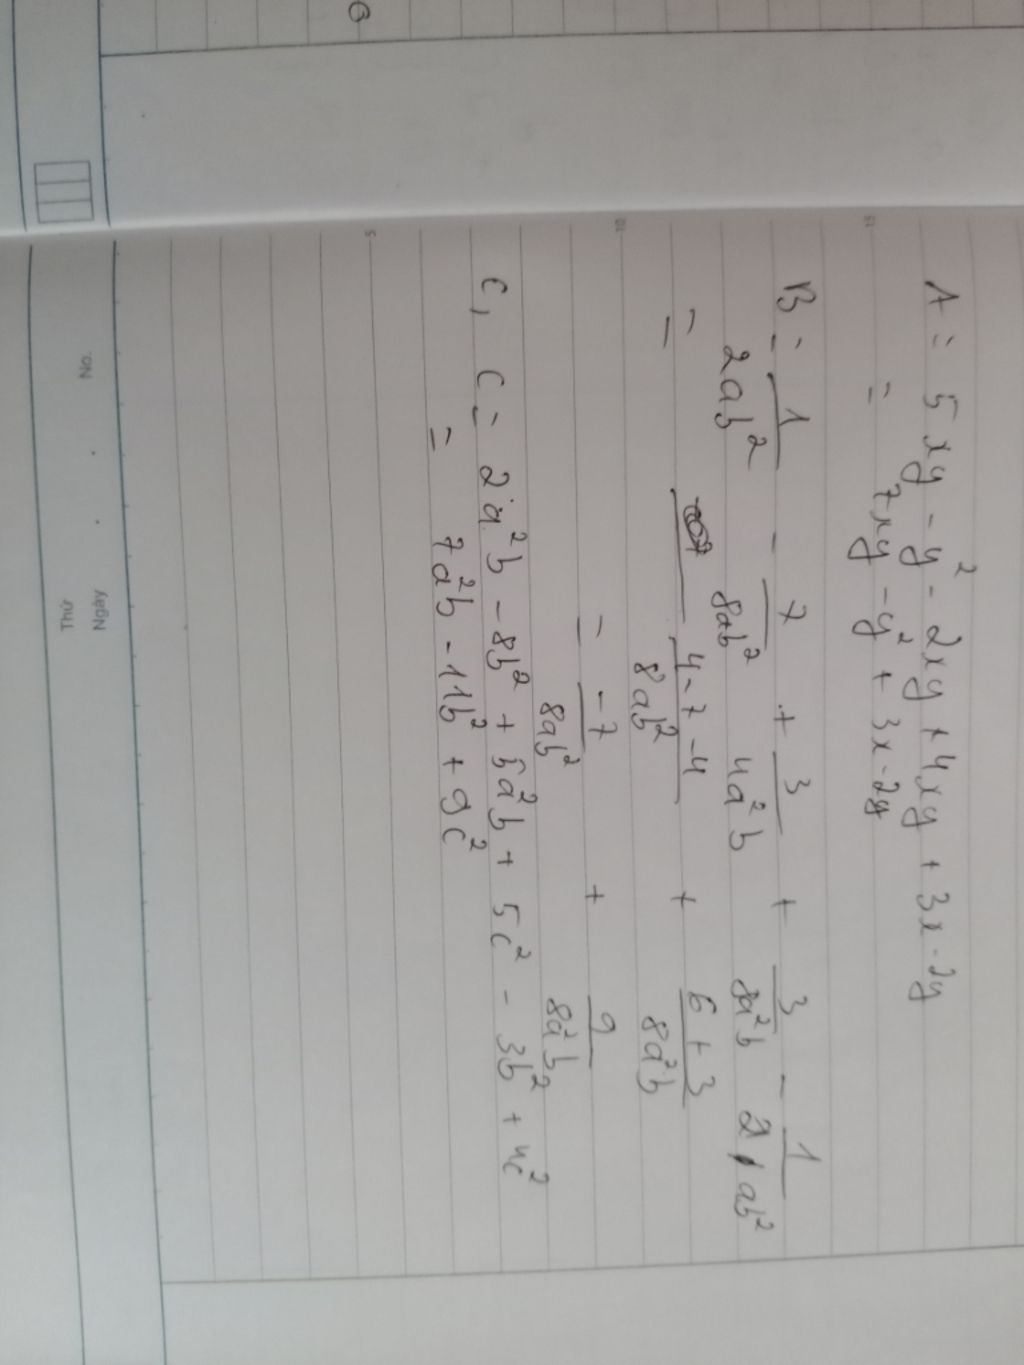 No.
Thứ
Ngày
A = 5xy - y² - 2xy + 4xy + 3x - 2y
= 7xy - y² + 3x - 2y
15
B = 1/2ab² - 7/8ab² + 3/4a²b + 3/8a²b - 1/2ab²
= 4-7-4/8ab² + 6+3/8a²b
10
= -7/8ab² + 9/8a²b
C, C = 2a²b - 8b² + 5a²b + 5c² - 3b² + 4c²
= 7a²b - 11b² + 9c²
5